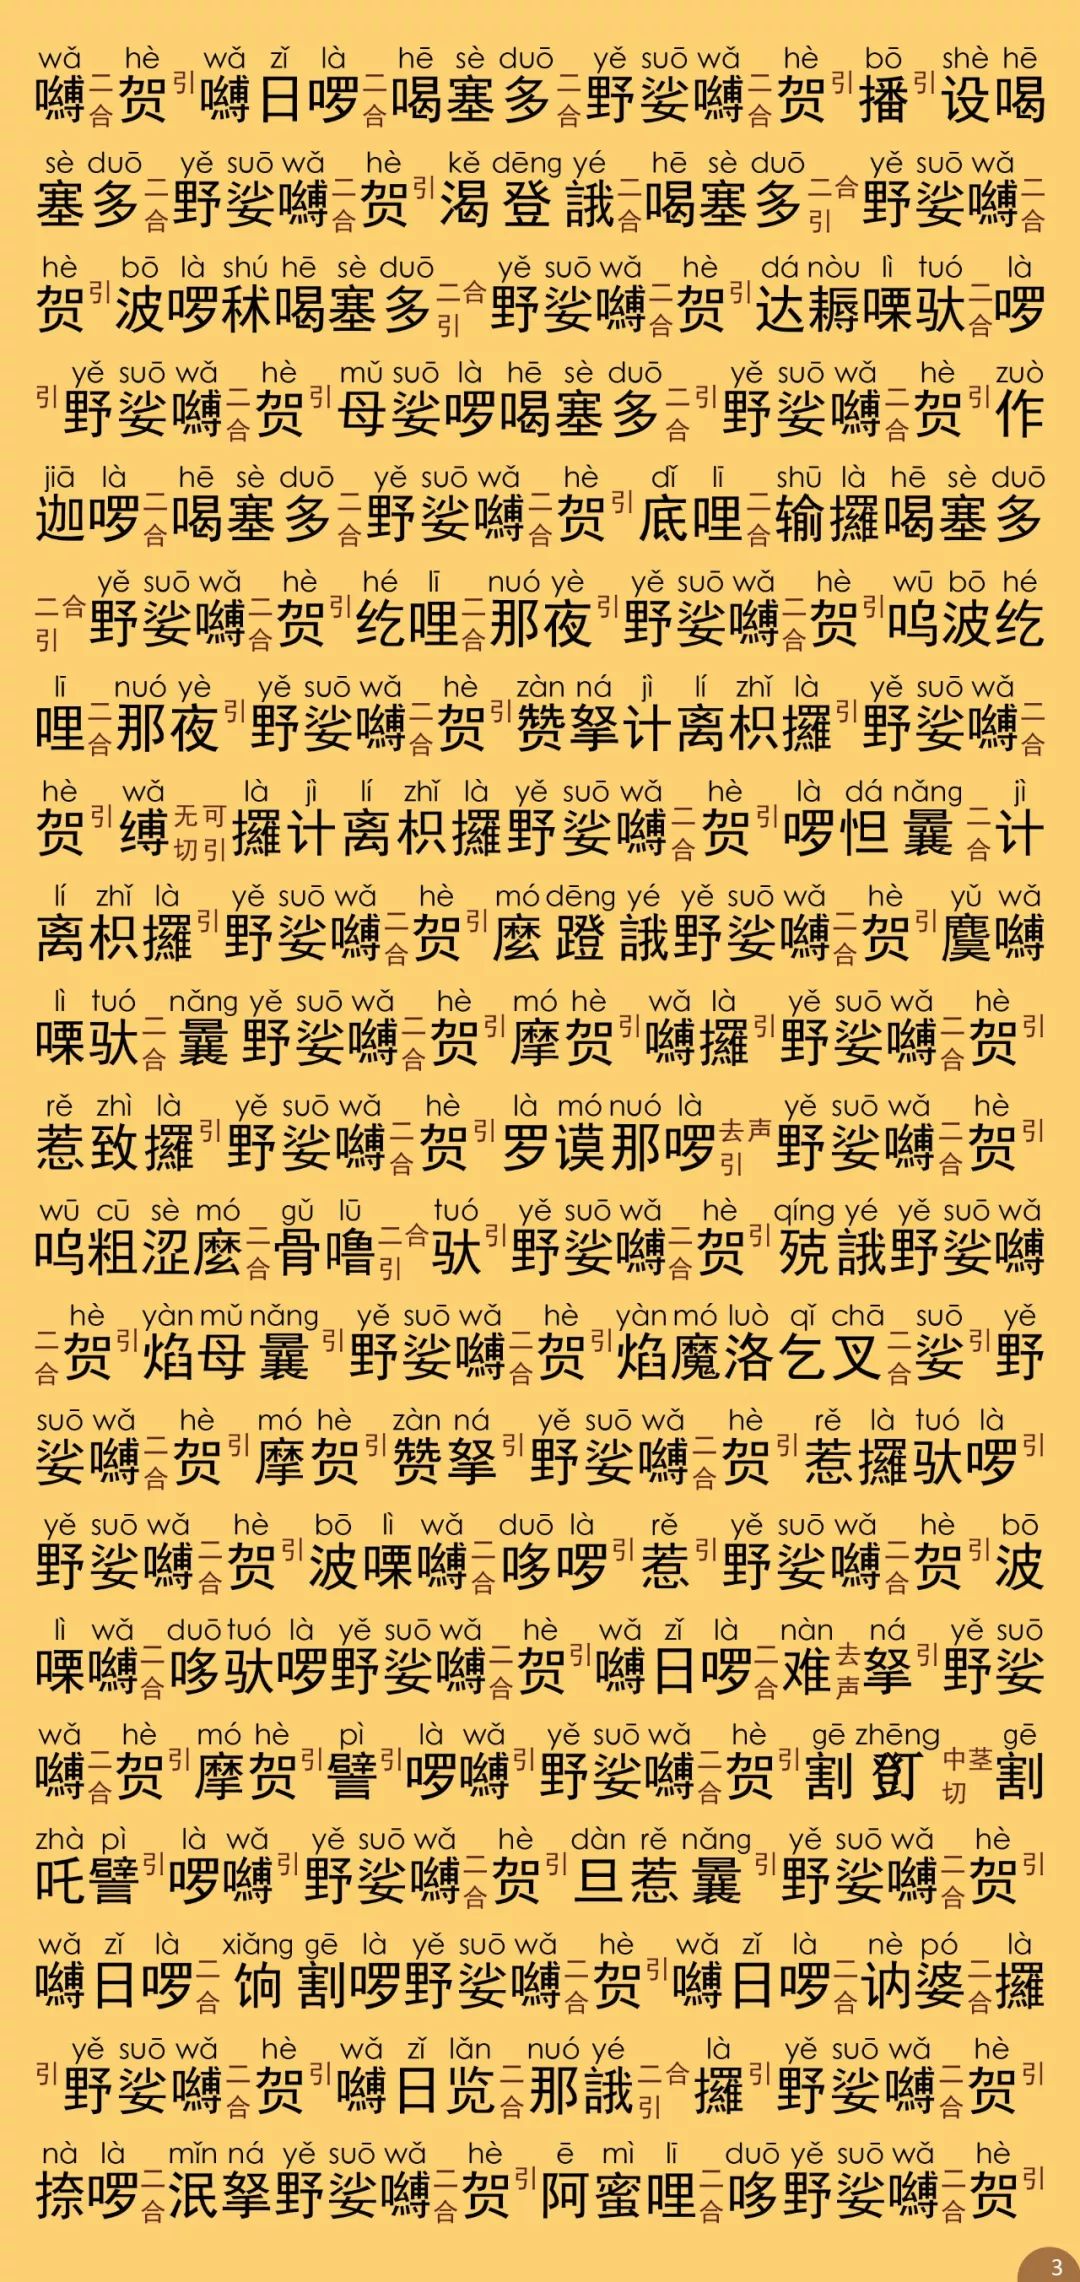 wǎ hè wǎ zǐ là hē sè duō yě suō wǎ hè bō shè hē
嚩二合贺引嚩日啰二合喝塞多二合野娑嚩二合贺引播引设喝
sè duō yě suō wǎ hè kě dēng yé hē sè duō yě suō wǎ
塞多二合野娑嚩二合贺引渴登誐二合喝塞多二合引野娑嚩二合
hè bō là shú hē sè duō yě suō wǎ hè dá nòu lì tuó là
贺引波啰秫喝塞多二合引野娑嚩二合贺引达耨㗚驮二合啰
yě suō wǎ hè mǔ suō là hē sè duō yě suō wǎ hè zuò
引野娑嚩二合贺引母娑啰喝塞多二合引野娑嚩二合贺引作
jiā là hē sè duō yě suō wǎ hè dǐ lī shū là hē sè duō
迦啰二合喝塞多二合野娑嚩二合贺引底哩二合输攞喝塞多
yě suō wǎ hè hé lī nuó yè yě suō wǎ hè wū bō hé
二合引野娑嚩二合贺引纥哩二合那夜引野娑嚩二合贺引呜波纥
lī nuó yè yě suō wǎ hè zàn ná jì lí zhǐ là yě suō wǎ
哩二合那夜引野娑嚩二合贺引赞拏计离枳攞引野娑嚩二合
hè wǎ là jì lí zhǐ là yě suō wǎ hè là dá nǎng jì
贺引缚无可切引攞计离枳攞野娑嚩二合贺引啰怛曩二合计
lí zhǐ là yě suō wǎ hè mó dēng yé yě suō wǎ hè yǔ wǎ
离枳攞引野娑嚩二合贺引麼蹬誐野娑嚩二合贺引麌嚩
lì tuó nǎng yě suō wǎ hè mó hè wǎ là yě suō wǎ hè
㗚驮二合曩野娑嚩二合贺引摩贺引嚩攞引野娑嚩二合贺引
rě zhì là yě suō wǎ hè là mó nuó là yě suō wǎ hè
惹致攞引野娑嚩二合贺引罗谟那啰去声引野娑嚩二合贺引
wū cū sè mó gǔ lū tuó yě suō wǎ hè qíng yé yě suō wǎ
呜粗涩麼二合骨噜二合引驮引野娑嚩二合贺引殑誐野娑嚩
hè yàn mǔ nǎng yě suō wǎ hè yàn mó luò qǐ chā suō yě
二合贺引焰母曩引野娑嚩二合贺引焰魔洛乞叉二合娑引野
suō wǎ hè mó hè zàn ná yě suō wǎ hè rě là tuó là
娑嚩二合贺引摩贺引赞拏引野娑嚩二合贺引惹攞驮啰引
yě suō wǎ hè bō lì wǎ duō là rě yě suō wǎ hè bō
野娑嚩二合贺引波㗚嚩二合哆啰引惹引野娑嚩二合贺引波
lì wǎ duō tuó là yě suō wǎ hè wǎ zǐ là nàn ná yě suō
㗚嚩二合哆驮啰野娑嚩二合贺引嚩日啰二合难去声拏引野娑
wǎ hè mó hè pì là wǎ yě suō wǎ hè gē zhēng gē
嚩二合贺引摩贺引譬引啰嚩引野娑嚩二合贺引割㔁中茎切割
zhà pì là wǎ yě suō wǎ hè dàn rě nǎng yě suō wǎ hè
吒譬引啰嚩引野娑嚩二合贺引旦惹曩引野娑嚩二合贺引
wǎ zǐ là xiǎng gē là yě suō wǎ hè wǎ zǐ là nè pó là
嚩日啰二合饷割啰野娑嚩二合贺引嚩日啰二合讷婆二合攞
yě suō wǎ hè wǎ zǐ lǎn nuó yé là yě suō wǎ hè
引野娑嚩二合贺引嚩日览二合那誐二合引攞引野娑嚩二合贺引
nà là mǐn ná yě suō wǎ hè ē mì lī duō yě suō wǎ hè
捺啰二合泯拏野娑嚩二合贺引阿蜜哩二合哆野娑嚩二合贺引
3